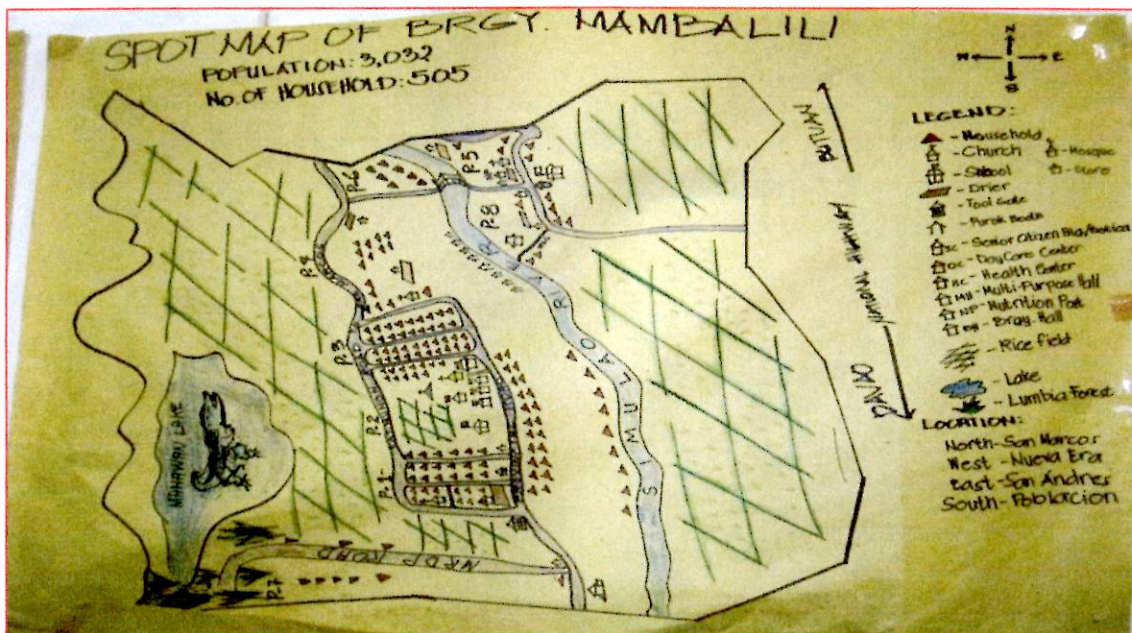 SPOT MAP OF BRGY. MAMBALILI
POPULATION: 3,032
No. OF HOUSEHOLD: 505
N
W E
S
LEGEND:
- Household
- Church
- Mosque
- School
- Drier
- Tool Gate
- Purok Booth
SC - Senior Citizen
DC - Day Care Center
HC - Health Center
MH - Multi-Purpose Hall
NP - Nutrition Post
BH - Brgy. Hall
- Rice field
- Lake
- Lumbia Forest
LOCATION:
North - San Marcos
West - Nueva Era
East - San Andres
South - Poblacion
BUTUAN
HIGHWAY
DAVAO
P-6
P-5
P-8
P-4
P-3
P-2
P-1
P-7
SIMULAO RIVER
LAKE
ROAD